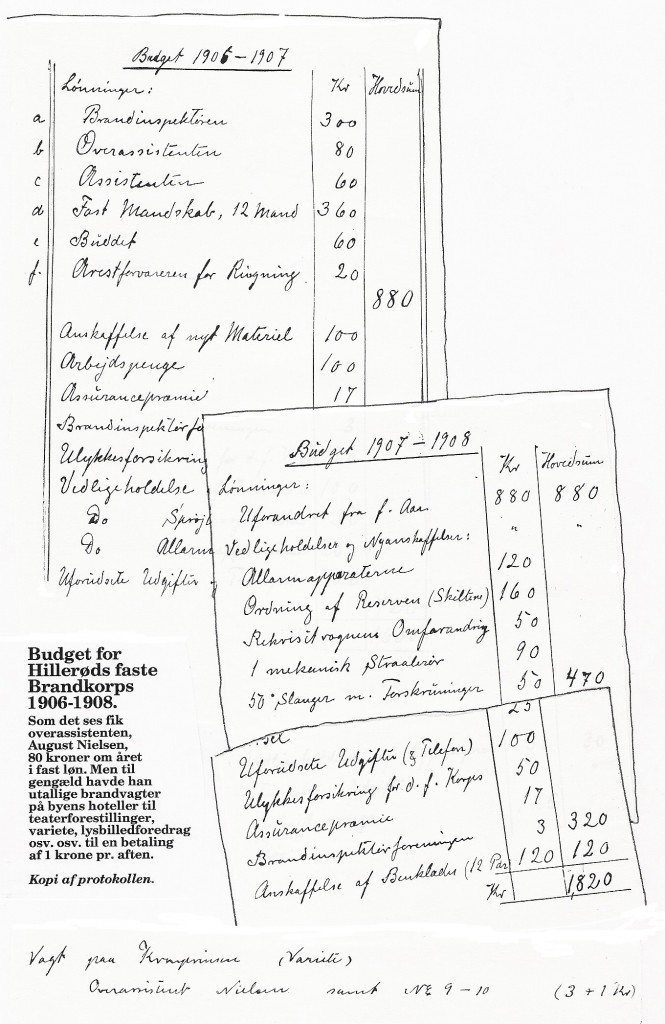 Budget 1906–1907
Lønninger: Kr Hovedsum
a Brandinspektøren 300
b Overassistenten 80
c Assistenten 60
d Fast Mandskab, 12 Mand 360
e Büddet 60
f. Arrestforvareren for Ringning 20
880
Anskaffelse af nyt Materiel 100
Arbejdspenge 100
Assurancepræmie 17
Brandinspektørfo
Ulykkesforsikring
Vedligeholdelse
Do Sprøjt
Do Allarm
Uforudsete Udgifter
Budget 1907–1908
Kr Hovedsum
Lønninger:
Uforandret fra f. Aar 880 880
Vedligeholdelser og Nyanskaffelser: " "
Allarmapparaterne 120
Ordning af Reserven (Skiltene) 160
Rekvisitvognens Omforandrig 50
1 mekanisk Straalerør 90
50° Slanger m. Forskruninger 50 470
25
..sel
Uforudsete Udgifter (& Telefon) 100
Ulykkesforsikring for d. f. Korps 50
Assurancepræmie 17
Brandinspektørforeningen 3 320
Anskaffelse af Benklæder (12 Par) 120 120
Kr 1,820
Budget for
Hillerøds faste
Brandkorps
1906-1908.
Som det ses fik
overassistenten,
August Nielsen,
80 kroner om året
i fast løn. Men til
gengæld havde han
utallige brandvagter
på byens hoteller til
teaterforestillinger,
variete, lysbilledforedrag
osv. osv. til en betaling
af 1 krone pr. aften.
Kopi af protokollen.
Vagt paa (Varieté)
Overassistent Nielsen samt No 9–10 (3 + 1 Kr)